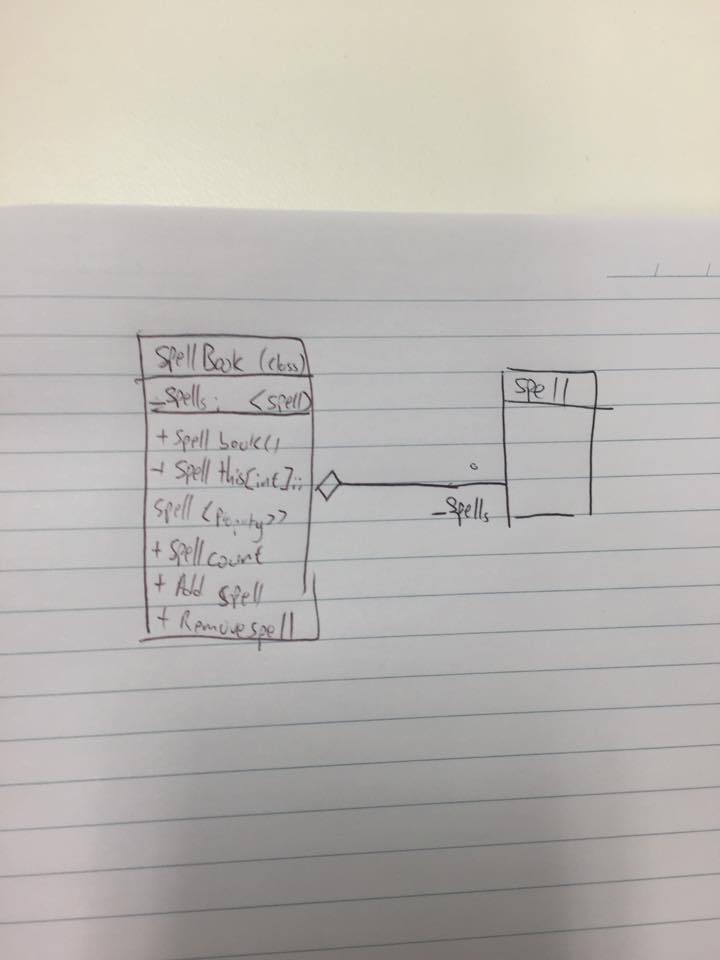 SpellBook (class)
-Spells: <Spell>
+ Spell book()
+ Spell this[int]::
Spell <Property>>
+ Spell count
+ Add Spell
+ Remove spell
Spell
-Spells